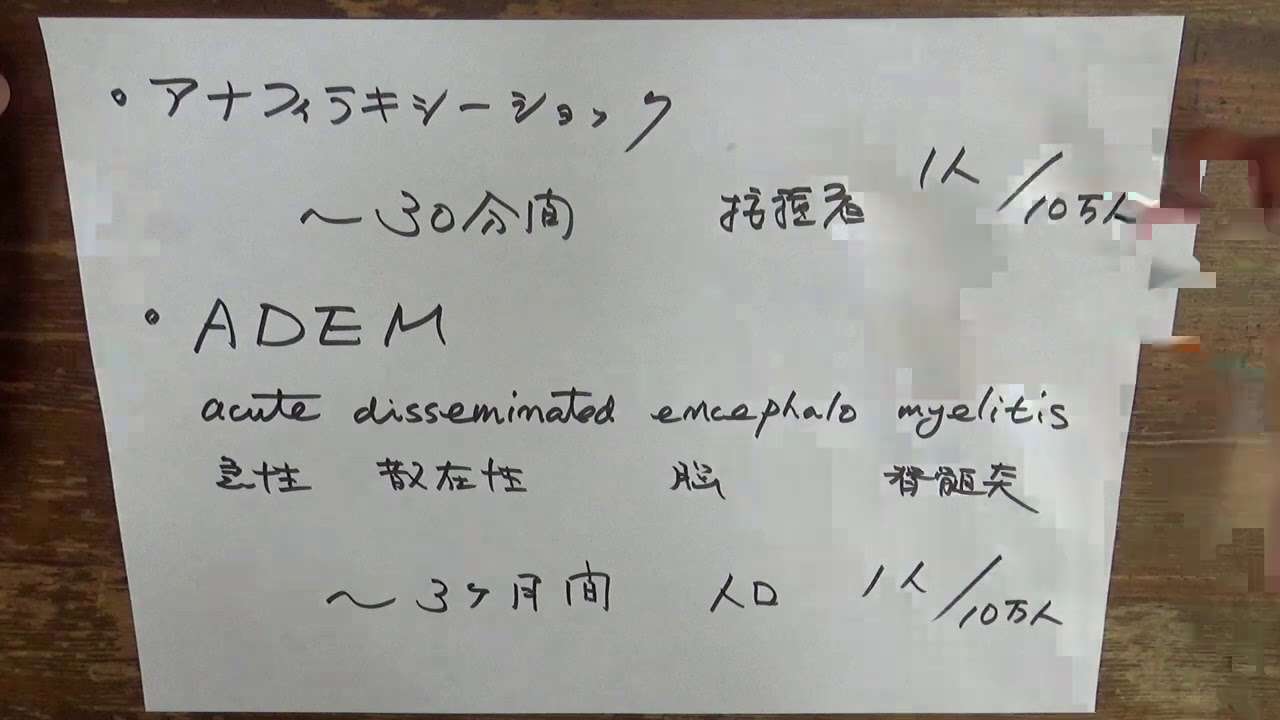 ・アナフィラキシーショック
～30分間 接種者 1人/10万人
・ADEM
acute disseminated encephalo myelitis
急性 散在性 脳 脊髄炎
～3ヶ月間 人口 1人/10万人